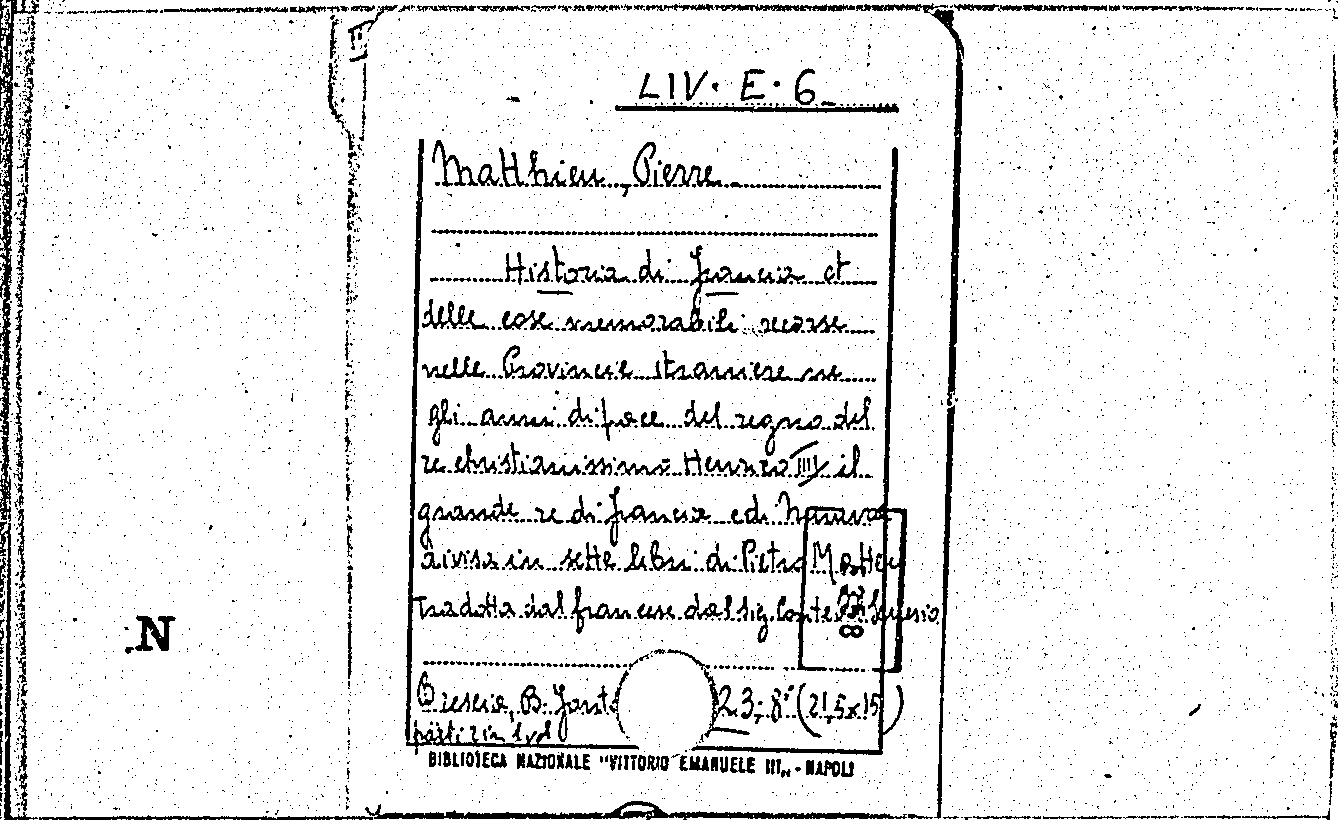 LIV. E. 6
Matthieu, Pierre
Historia di Francia et
delle cose memorabili occorse
nelle Provincie straniere ne
gli anni di pace del regno del
re christianissimo Henrico IIII il
grande re di Francia e di Navarra
divisa in sette libri di Pietro Matthei
Tradotta dal francese dal sig. Conte Senesio
N
Brescia, B. Font 23; 8° (21,5x15)
parti 2 in 1 vol
BIBLIOTECA NAZIONALE "VITTORIO EMANUELE III„ - NAPOLI